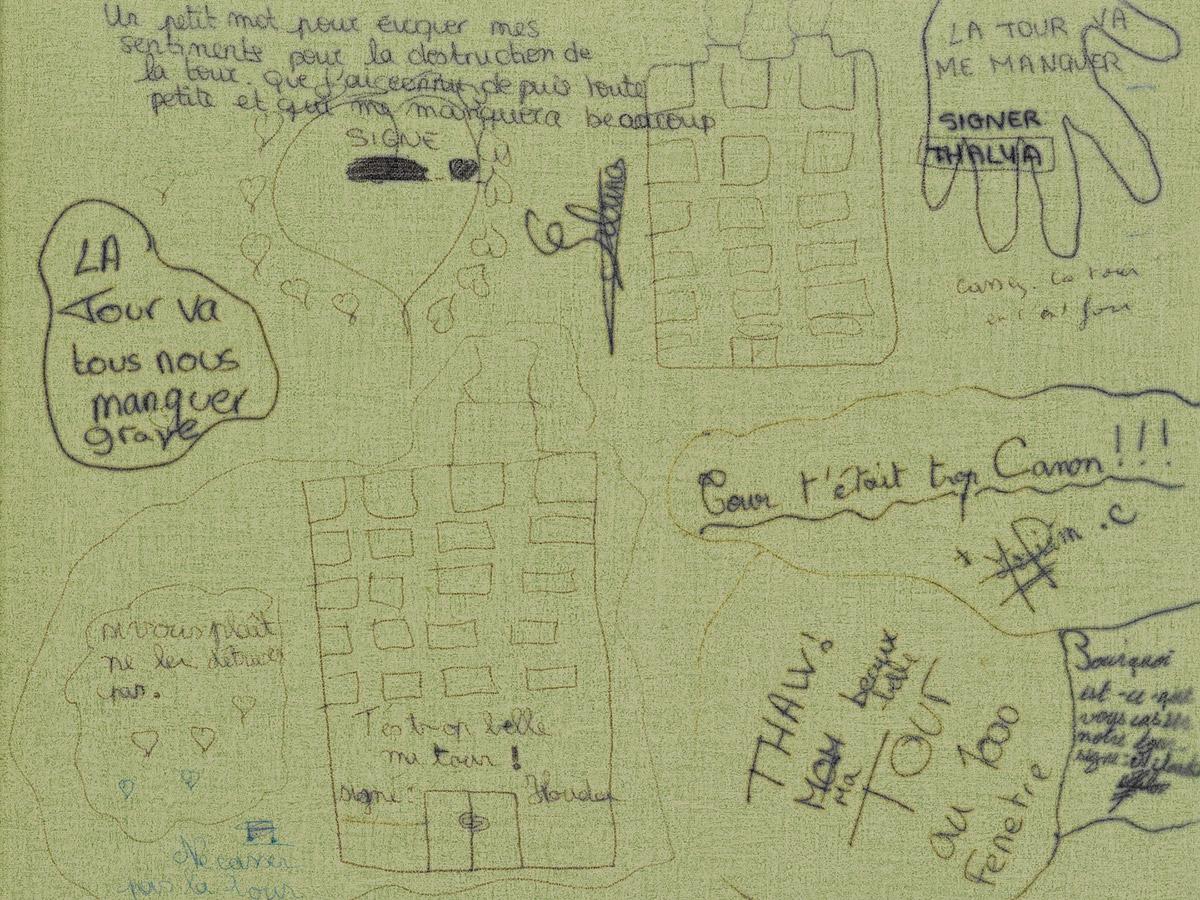 Un petit mot pour évoquer mes
sentiments pour la destruction de
la tour. que j'ai connue depuis toute
petite et qui me manquera beaucoup
SIGNE
LA TOUR VA
ME MANQUER
SIGNER
THALYA
casser la tour
LA
Tour va
tous nous
manquer
grave
Tour t'était trop Canon!!!
.C
si vous plaît
ne les détruisez
pas.
T'es trop belle
ma tour !
signe:
Ne casser
pas la tour
THALY!
MON
MA
TOUR
au 1000
Fenetre
Pourquoi
est-ce que
vous casser
notre tour
signe: